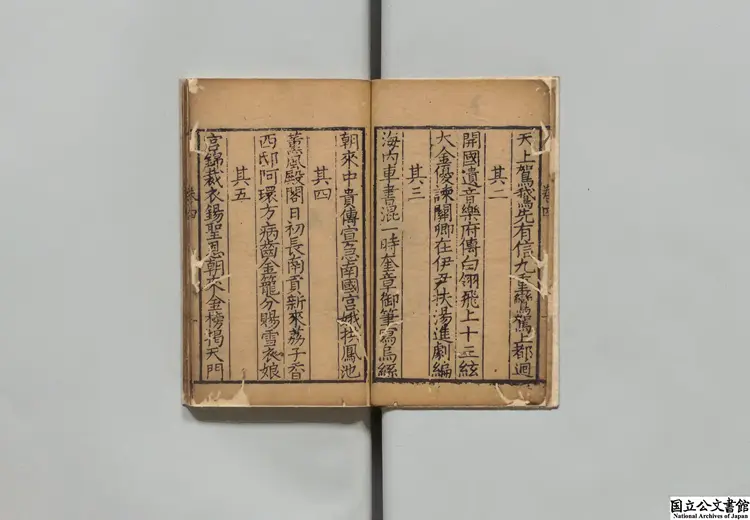 天上駕鵞先有信九重鸞駕上都迴
其二
開國遺音樂府傳白翎飛上十三絃
大金優諫關卿在伊尹扶湯進劇編
其三
海内車書混一時奎章御筆寫烏絲
朝來中貴傳宣急南國宮娥拱鳳池
其四
薰風殿閣日初長南貢新來荔子香
西邸阿環方病齒金籠分賜雪衣娘
其五
宮錦裁衣錫聖恩朝來金榜揭天門
国立公文書館
National Archives of Japan